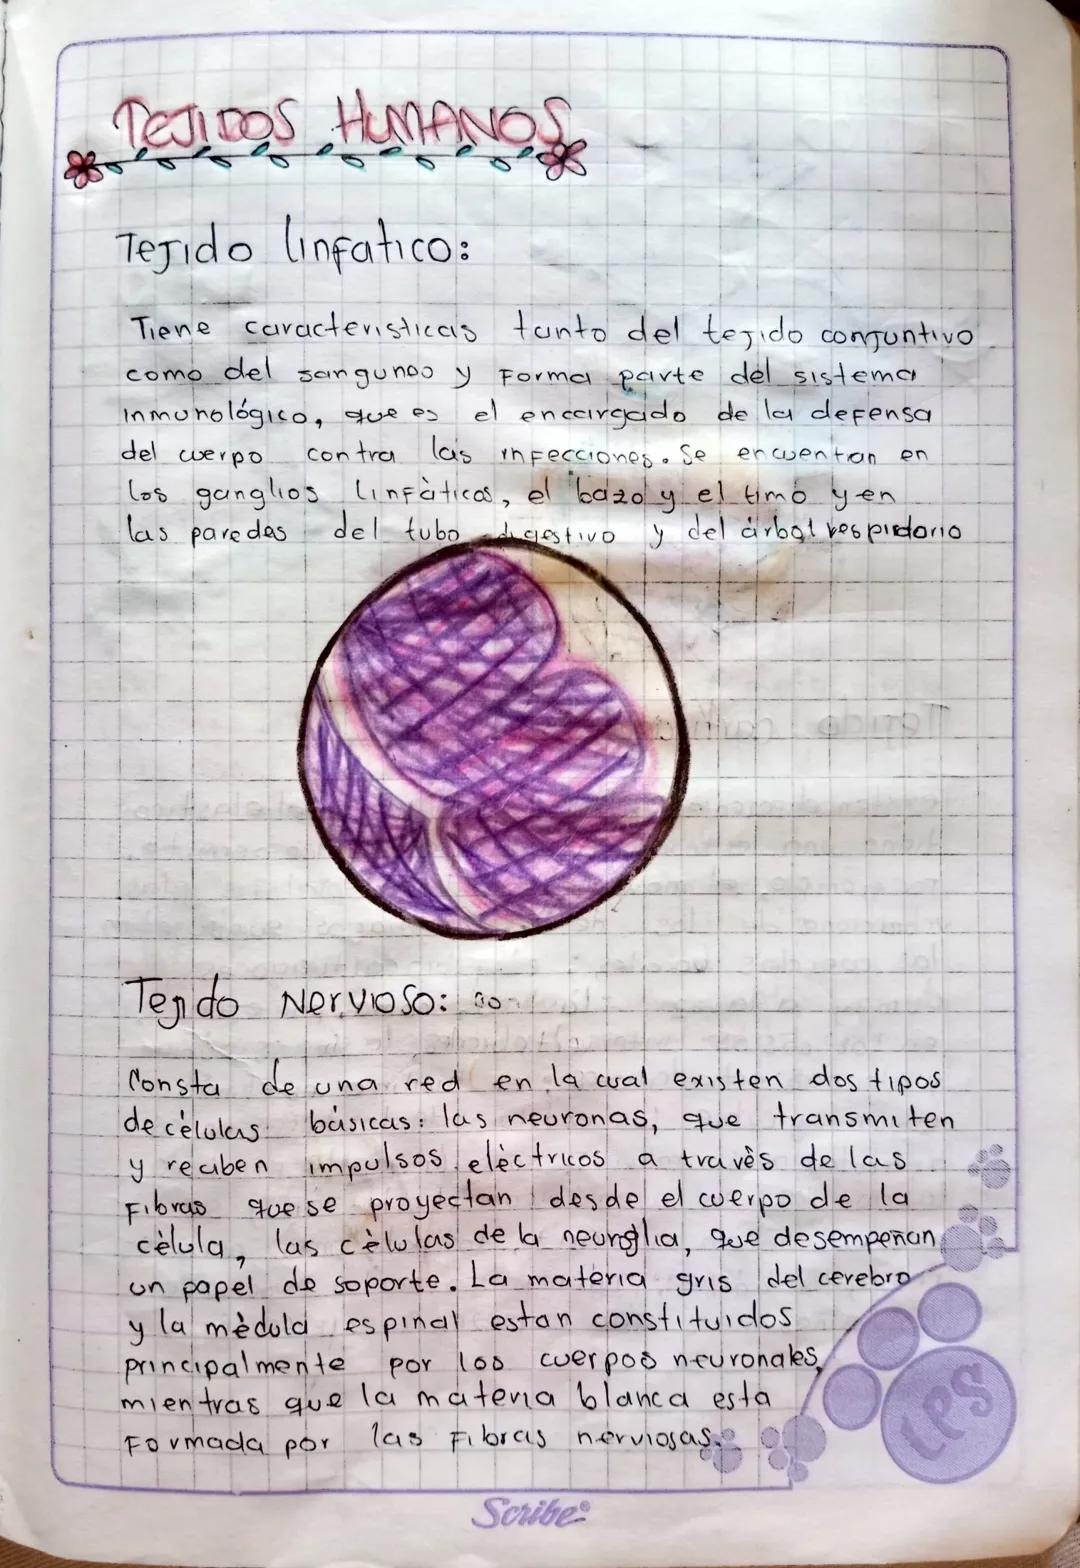 TEJIDOS HUMANOS
Tejido linfatico:
Tiene caracteristicas tanto del tejido conjuntivo
como del sanguneo y Forma parte del sistema
inmunològico, que es el encargado de la defensa
del cuerpo contra las infecciones. Se encuentan en
los ganglios linfàticos, el bazo y el timo y en
las paredes del tubo digestivo y del àrbol respiratorio
Tejido Nervioso:
Consta de una red en la cual existen dos tipos
de cèlulas bàsicas: las neuronas, que transmiten
y reciben impulsos elèctricos a travès de las
Fibras que se proyectan desde el cuerpo de la
cèlula, las cèlulas de la neuroglia, que desempeñan
un papel de soporte. La materia gris del cerebro
y la mèdula espinal estan constituidos
principalmente por los cuerpos neuronales,
mientras que la materia blanca esta
Formada por las Fibras nerviosas.
LPS
Scribe